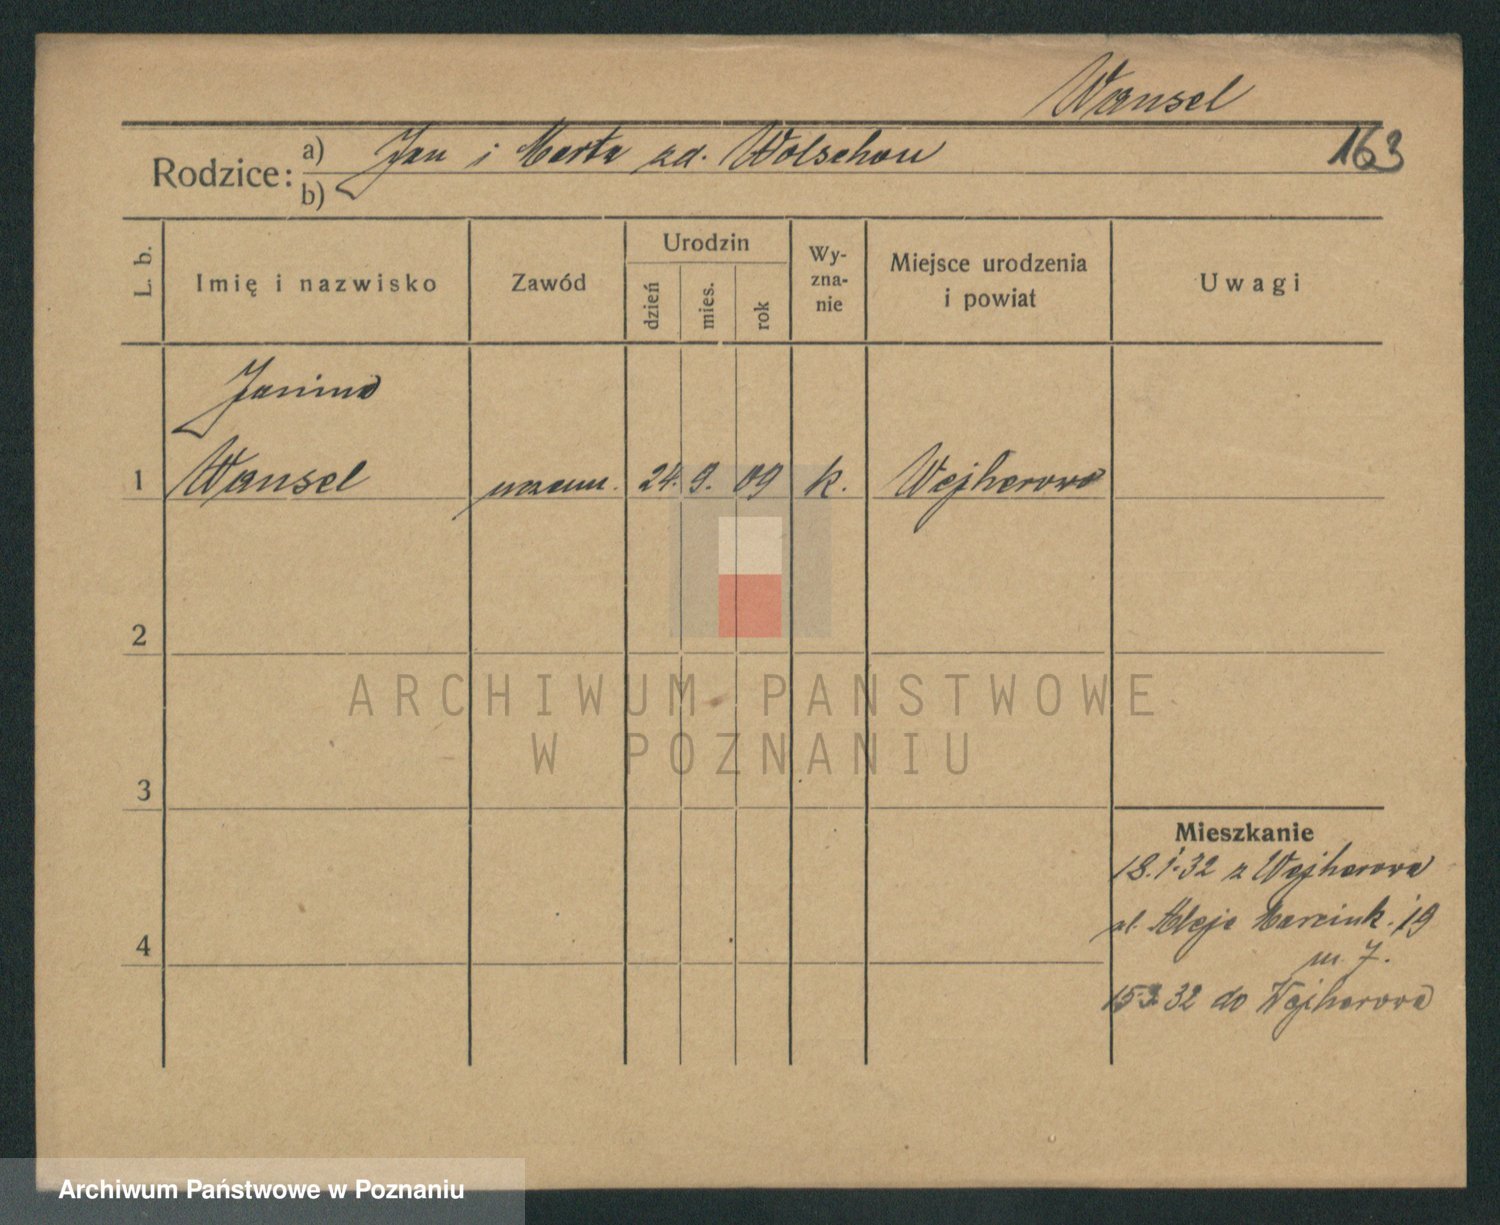 Wansel
163
Rodzice: a) Jan i Marta zd. Wolschon
b)
L. b.
Imię i nazwisko
Zawód
Urodzin
dzień
mies.
rok
Wy-
zna-
nie
Miejsce urodzenia
i powiat
Uwagi
Janina
1 Wansel 24. 9. 09 k. Wejherowo
2
3
4
Mieszkanie
18.1.32 z Wejherowa
ul. Aleje Marcink. 19
m 7.
15.3.32 do Wejherowa
ARCHIWUM PAŃSTWOWE
W POZNANIU
Archiwum Państwowe w Poznaniu